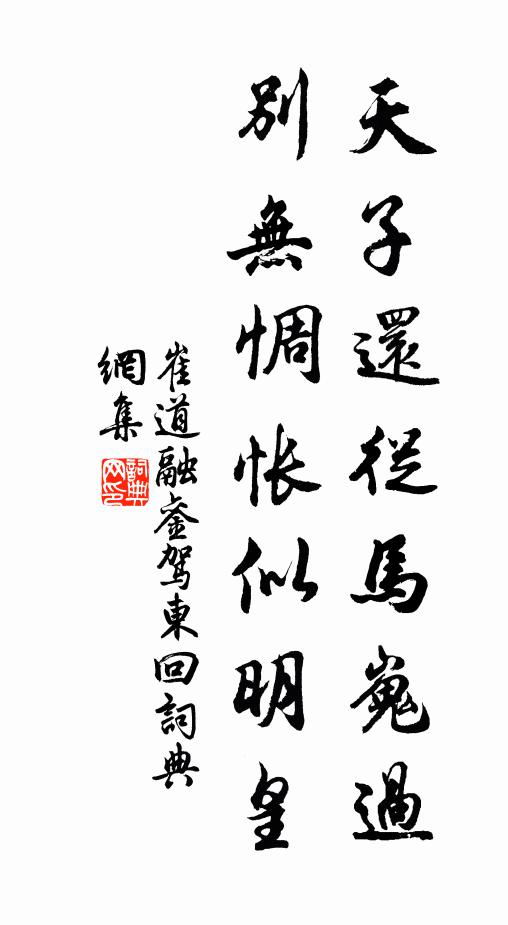 天子還從馬嵬過
別無惆悵似明皇
崔道融鑾駕東回詞典
網集
詞典網印